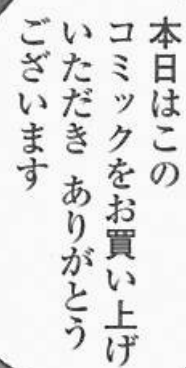 本日はこの
コミックをお買い上げ
いただき ありがとう
ございます